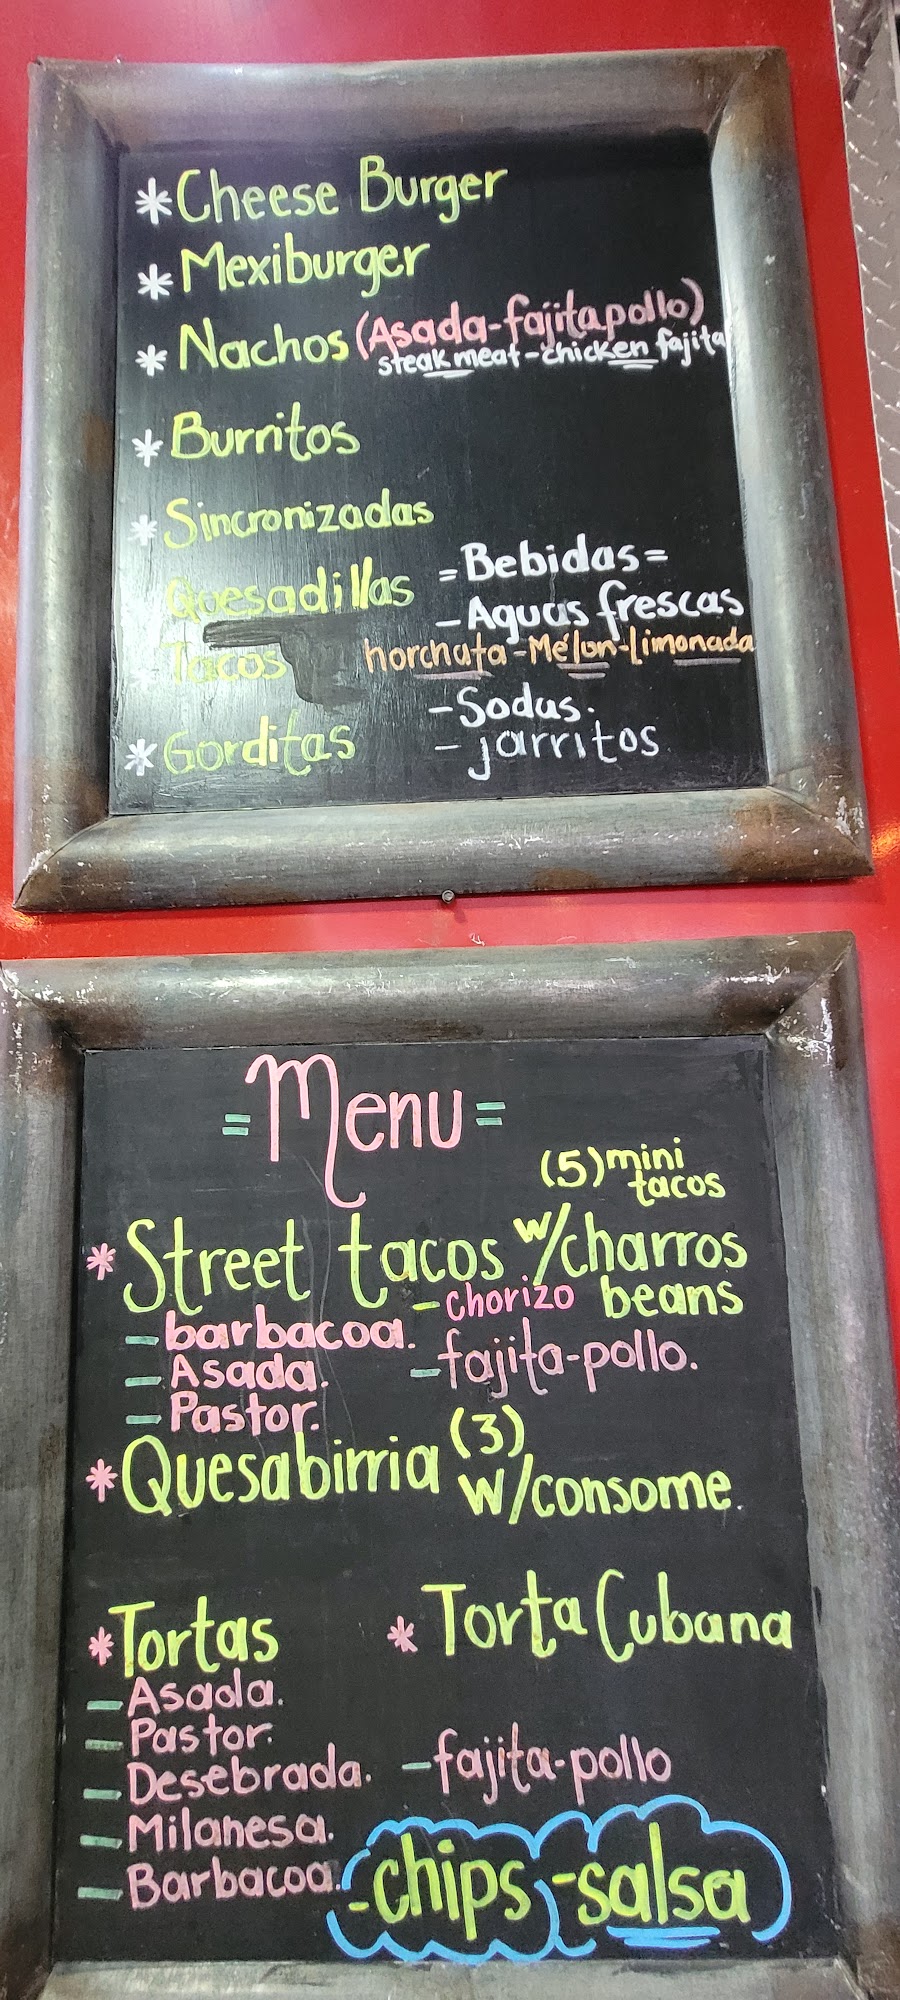 * Cheese Burger
* Mexiburger
* Nachos (Asada-fajita pollo)
steak meat - chicken fajita
* Burritos
* Sincronizadas
Quesadillas
Tacos
* Gorditas
= Bebidas =
- Aguas frescas
horchata - Mélon - Limonada
- Sodas.
- jarritos
= Menu =
(5) mini
tacos
* Street tacos w/charros
beans
- barbacoa.
- Asada.
- Pastor.
- chorizo
- fajita-pollo.
* Quesabirria (3)
w/consome.
* Tortas
- Asada.
- Pastor.
- Desebrada.
- Milanesa.
- Barbacoa.
* Torta Cubana
- fajita-pollo
- chips - salsa